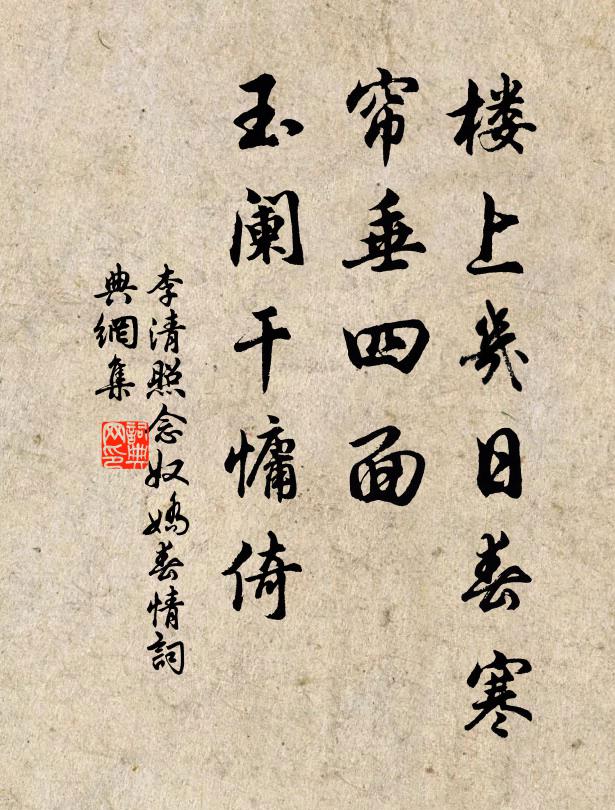 楼上几日春寒
帘垂四面
玉阑干慵倚
李清照念奴娇春情詞
典網集
詞典
网印